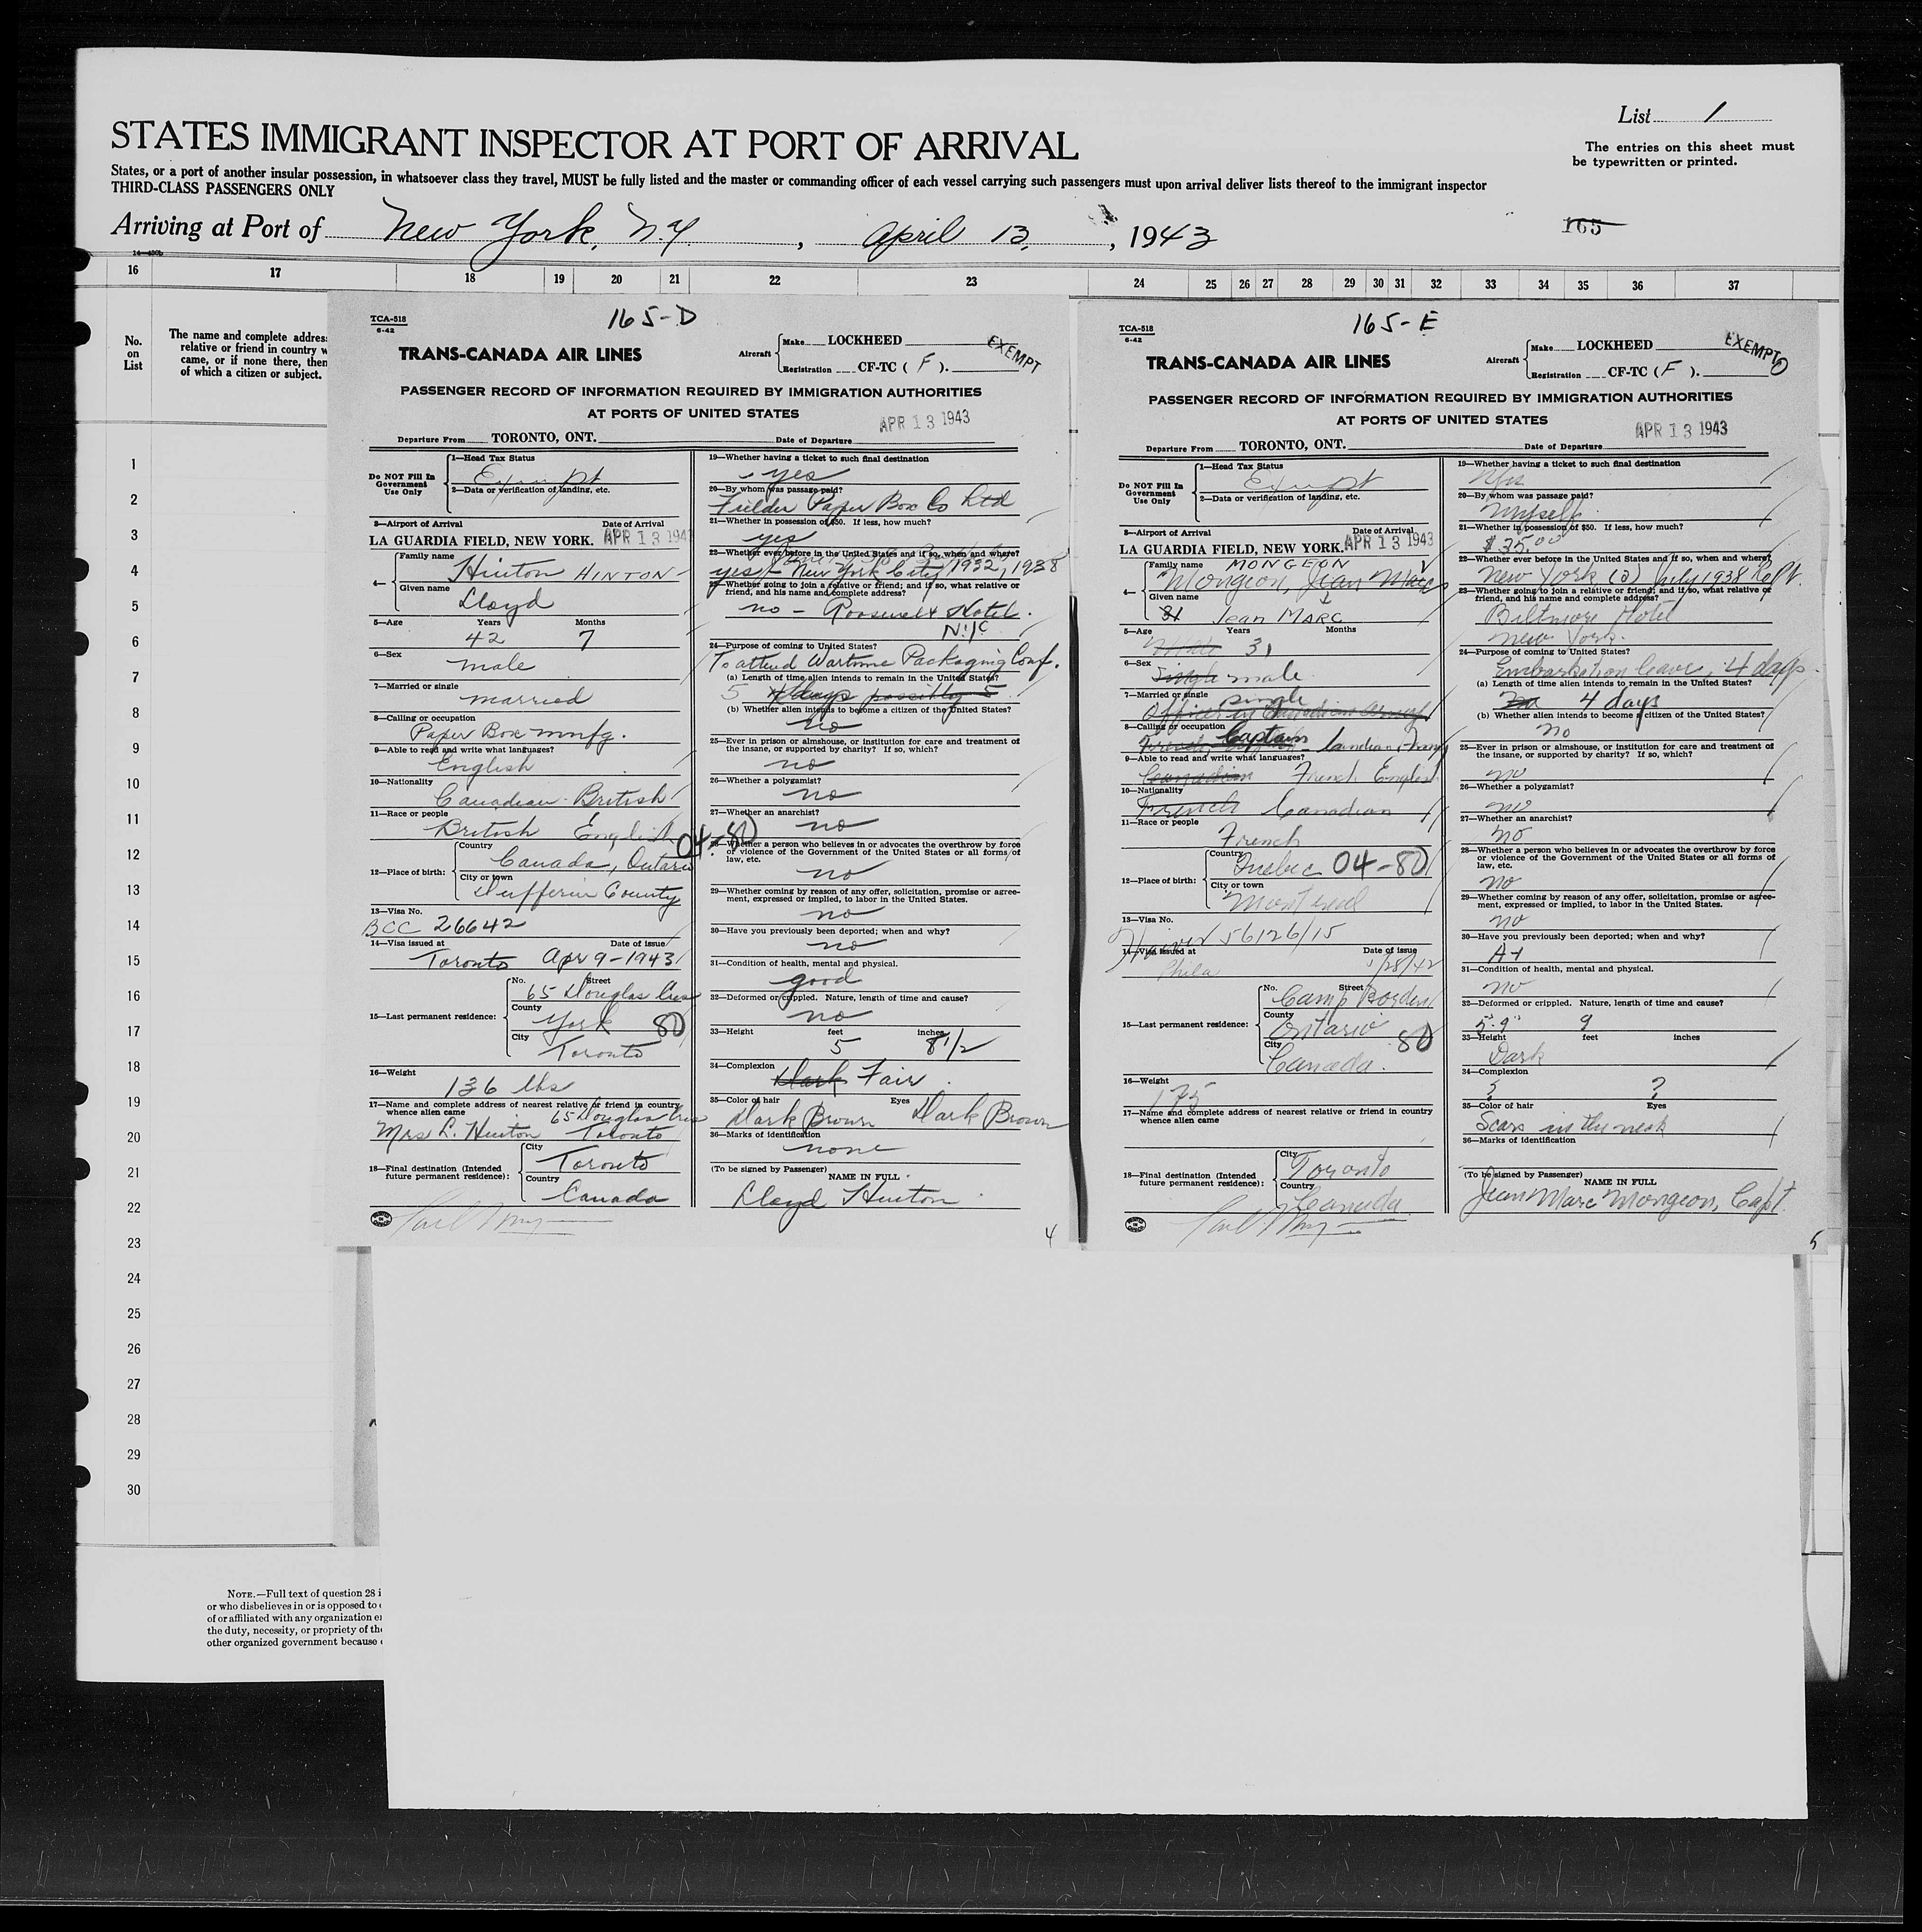 List 1
STATES IMMIGRANT INSPECTOR AT PORT OF ARRIVAL
The entries on this sheet must
be typewritten or printed.
States, or a port of another insular possession, in whatsoever class they travel, MUST be fully listed and the master or commanding officer of each vessel carrying such passengers must upon arrival deliver lists thereof to the immigrant inspector
THIRD-CLASS PASSENGERS ONLY
Arriving at Port of New York, N.Y. , April 13, , 1943
165
16 17 18 19 20 21 22 23 24 25 26 27 28 29 30 31 32 33 34 35 36 37
No.
on
List
The name and complete address
relative or friend in country w
came, or if none there, then
of which a citizen or subject.
1
2
3
4
5
6
7
8
9
10
11
12
13
14
15
16
17
18
19
20
21
22
23
24
25
26
27
28
29
30
NOTE.—Full text of question 28 i
or who disbelieves in or is opposed to
of or affiliated with any organization e
the duty, necessity, or propriety of the
other organized government because
TCA-518
6-42
165-D
TRANS-CANADA AIR LINES
Aircraft Make LOCKHEED
Registration CF-TC ( F ).
EXEMPT
PASSENGER RECORD OF INFORMATION REQUIRED BY IMMIGRATION AUTHORITIES
AT PORTS OF UNITED STATES
APR 13 1943
Departure From TORONTO, ONT. Date of Departure
Do NOT Fill In
Government
Use Only
1—Head Tax Status
Exempt
2—Data or verification of landing, etc.
3—Airport of Arrival Date of Arrival
LA GUARDIA FIELD, NEW YORK. APR 13 1943
4— Family name
Hinton HINTON
Given name
Lloyd
5—Age Years Months
42 7
6—Sex
male
7—Married or single
married
8—Calling or occupation
Paper Box mnfg.
9—Able to read and write what languages?
English
10—Nationality
Canadian-British
11—Race or people
British English
04-80
12—Place of birth:
Country
Canada, Ontario
City or town
Dufferin County
13—Visa No.
BCC 26642
14—Visa issued at Date of issue
Toronto Apr 9-1943
15—Last permanent residence:
No. Street
65 Douglas Cres
County
York 80
City
Toronto
16—Weight
136 lbs
17—Name and complete address of nearest relative or friend in country
whence alien came 65 Douglas Cres
Mrs L. Hinton Toronto
18—Final destination (Intended
future permanent residence):
City
Toronto
Country
Canada
19—Whether having a ticket to such final destination
yes
20—By whom was passage paid?
Fielder Paper Box Co Ltd
21—Whether in possession of $50. If less, how much?
yes
22—Whether ever before in the United States and if so, when and where?
yes - New York City 1932, 1938
23—Whether going to join a relative or friend; and if so, what relative or
friend, and his name and complete address?
no - Roosevelt Hotel.
N.Y.C
24—Purpose of coming to United States?
To attend Wartime Packaging Conf.
(a) Length of time alien intends to remain in the United States?
5 4 days possibly 5
(b) Whether alien intends to become a citizen of the United States?
no
25—Ever in prison or almshouse, or institution for care and treatment of
the insane, or supported by charity? If so, which?
no
26—Whether a polygamist?
no
27—Whether an anarchist?
no
28—Whether a person who believes in or advocates the overthrow by force
or violence of the Government of the United States or all forms of
law, etc.
no
29—Whether coming by reason of any offer, solicitation, promise or agree-
ment, expressed or implied, to labor in the United States.
no
30—Have you previously been deported; when and why?
no
31—Condition of health, mental and physical.
good
32—Deformed or crippled. Nature, length of time and cause?
no
33—Height feet inches
5 8 1/2
34—Complexion
Dark Fair
35—Color of hair Eyes
Dark Brown Dark Brown
36—Marks of identification
none
(To be signed by Passenger)
NAME IN FULL
Lloyd Hinton
4
TCA-518
6-42
165-E
TRANS-CANADA AIR LINES
Aircraft Make LOCKHEED
Registration CF-TC ( F ).
EXEMPT
PASSENGER RECORD OF INFORMATION REQUIRED BY IMMIGRATION AUTHORITIES
AT PORTS OF UNITED STATES
APR 13 1943
Departure From TORONTO, ONT. Date of Departure
Do NOT Fill In
Government
Use Only
1—Head Tax Status
Exempt
2—Data or verification of landing, etc.
3—Airport of Arrival Date of Arrival
LA GUARDIA FIELD, NEW YORK. APR 13 1943
4— Family name MONGEON
Mongeon, Jean Marc
Given name
31 Jean MARC
5—Age Years Months
Male 31
6—Sex
Single male
7—Married or single single
Officer in Canadian Army
8—Calling or occupation Captain
Canadian Army
9—Able to read and write what languages?
Canadian French English
10—Nationality
French Canadian
11—Race or people
French
12—Place of birth:
Country
Quebec 04-80
City or town
Montreal
13—Visa No.
Waiver 56126/15
14—Visa issued at Date of issue
Phila /28/42
15—Last permanent residence:
No. Street
Camp Borden
County
Ontario
City 80
Canada.
16—Weight
175
17—Name and complete address of nearest relative or friend in country
whence alien came
18—Final destination (Intended
future permanent residence):
City
Toronto
Country
Canada.
19—Whether having a ticket to such final destination
Yes
20—By whom was passage paid?
Myself
21—Whether in possession of $50. If less, how much?
$35.00
22—Whether ever before in the United States and if so, when and where?
New York (a) July 1938
23—Whether going to join a relative or friend; and if so, what relative or
friend, and his name and complete address?
Biltmore Hotel
New York.
24—Purpose of coming to United States?
Embarkation leave, 4 days
(a) Length of time alien intends to remain in the United States?
4 days
(b) Whether alien intends to become a citizen of the United States?
no
25—Ever in prison or almshouse, or institution for care and treatment of
the insane, or supported by charity? If so, which?
no
26—Whether a polygamist?
no
27—Whether an anarchist?
no
28—Whether a person who believes in or advocates the overthrow by force
or violence of the Government of the United States or all forms of
law, etc.
no
29—Whether coming by reason of any offer, solicitation, promise or agree-
ment, expressed or implied, to labor in the United States.
no
30—Have you previously been deported; when and why?
A1
31—Condition of health, mental and physical.
no
32—Deformed or crippled. Nature, length of time and cause?
5'.9" 9
33—Height feet inches
Dark
34—Complexion
? ?
35—Color of hair Eyes
Scars in the neck
36—Marks of identification
(To be signed by Passenger)
NAME IN FULL
Jean Marc Mongeon, Capt.
5